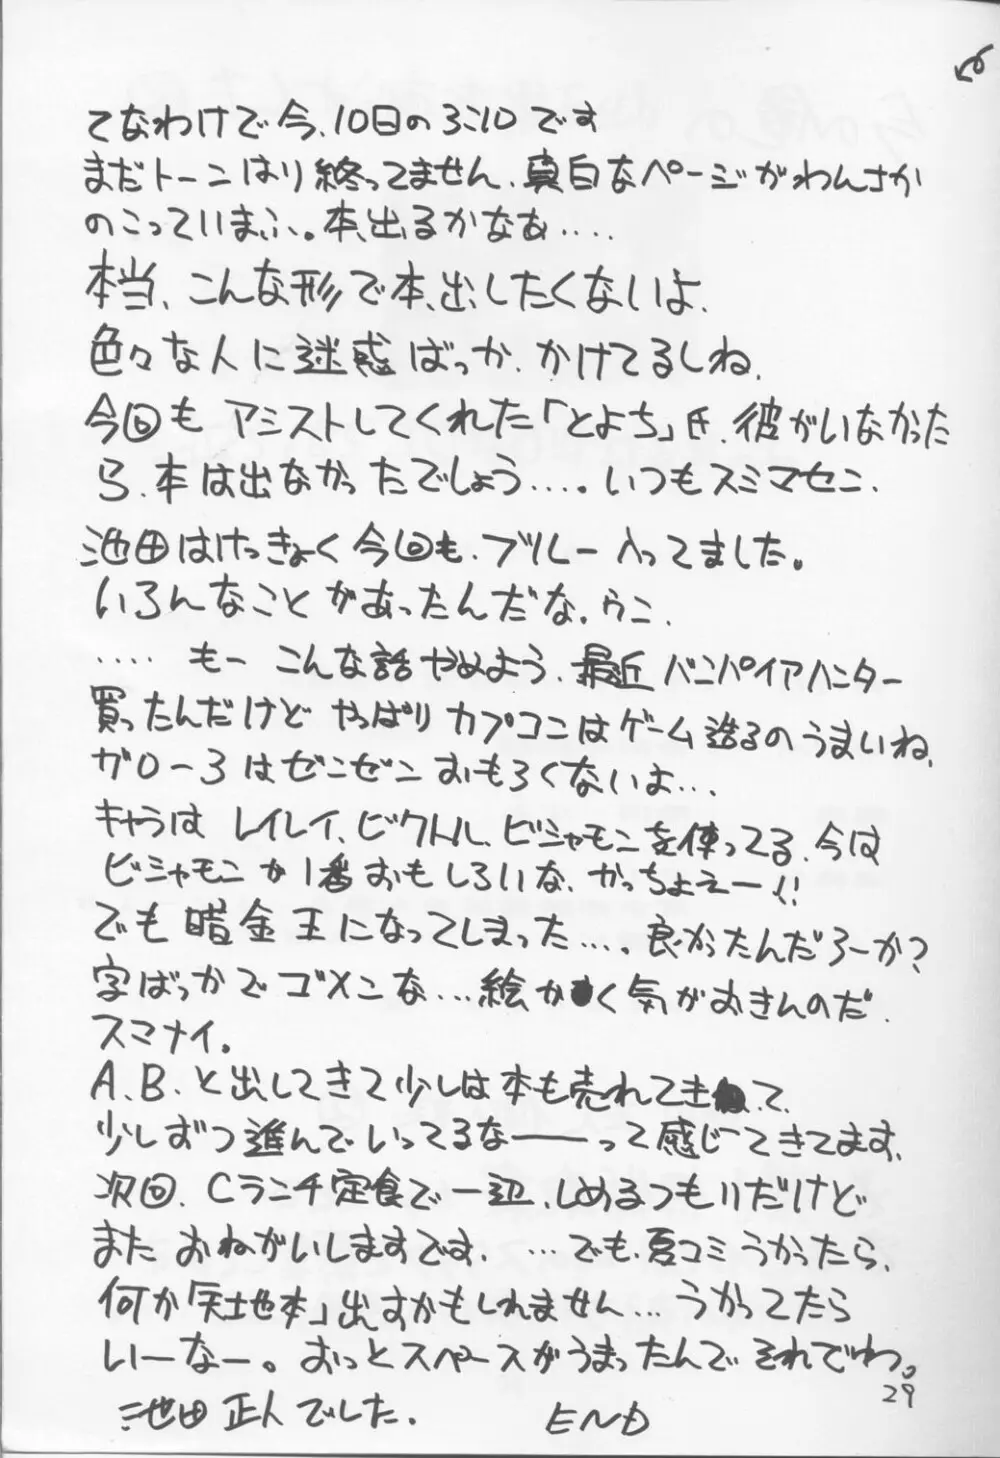 てなわけで今、10日の3:10です
まだトーンはり終ってません、真白なページがわんさか
のこっていまふ。本、出るかなあ....
本当、こんな形で本、出したくないよ、
色々な人に迷惑ばっか、かけてるしね、
今回もアシストしてくれた「とよち」氏、彼がいなかった
ら、本は出なかったでしょう....。いつもスミマセニ、
池田はけっきょく今回も、ブルー入ってました。
いろんなことがあったんだな。ウニ、
.... もー こんな話やめよう、最近バンパイアハンター
買ったんだけど やっぱりカプコンはゲーム造るのうまいね、
ガロー3はぜんぜんおもろくないよ...
キャラは レイレイ、ビクトル、ビシャモンを使ってる、今は
ビシャモンが1番おもしろいな、かっちょえー!!
でも 暗金王になってしまった....。良かったんだろーか?
字ばっかでゴメンな...絵かく気がおきんのだ、
スマナイ。
A、B、と出してきて少しは本も売れてきて、
少しずつ進んでいってるなーーって感じてきてます、
次回、Cランチ定食で一辺、しめるつもりだけど
またおねがいしますです、...でも、夏コミうかったら、
何か「天地本」出すかもしれません...うかってたら
いーなー。おっとスペースがうまったんで それでわ。
29
池田正人でした. END